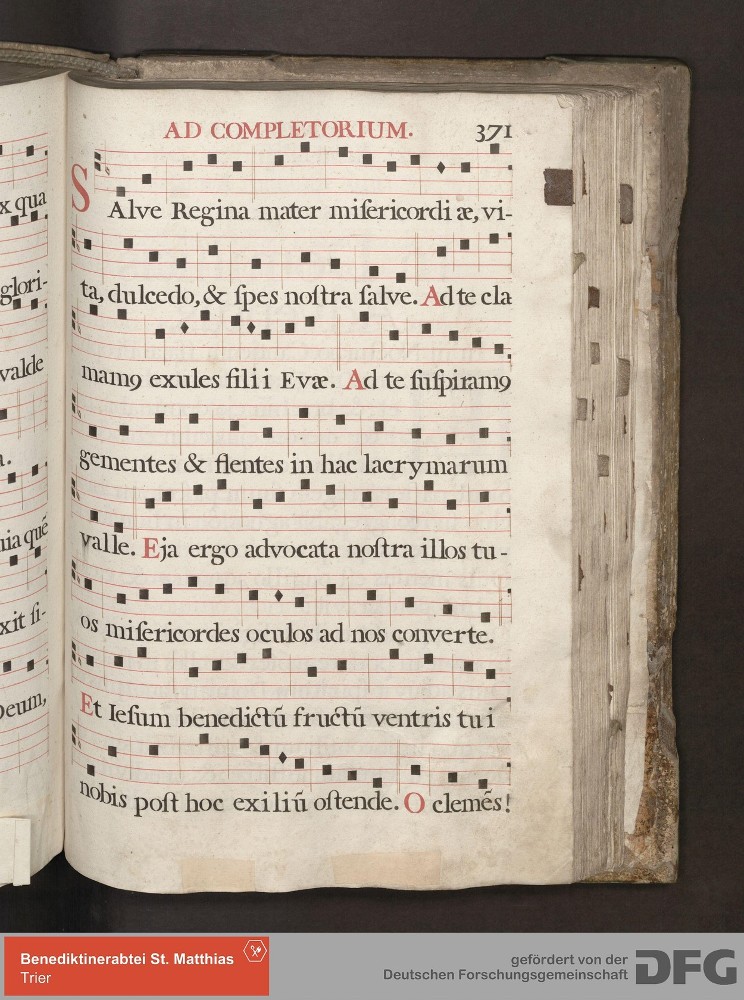 x qua
glori-
valde
a.
uia quē
xit ſi-
peum,
AD COMPLETORIUM. 371
SAlve Regina mater miſericordi æ, vi-
ta, dulcedo, & ſpes noſtra ſalve. Ad te cla
mamꝯ exules filii Evæ. Ad te ſuſpiramꝯ
gementes & flentes in hac lacrymarum
valle. Eja ergo advocata noſtra illos tu-
os miſericordes oculos ad nos converte.
Et Ieſum benedictū fructū ventris tui
nobis poſt hoc exiliū oſtende. O clemēs!
Benediktinerabtei St. Matthias
Trier
gefördert von der
Deutschen Forschungsgemeinschaft
DFG